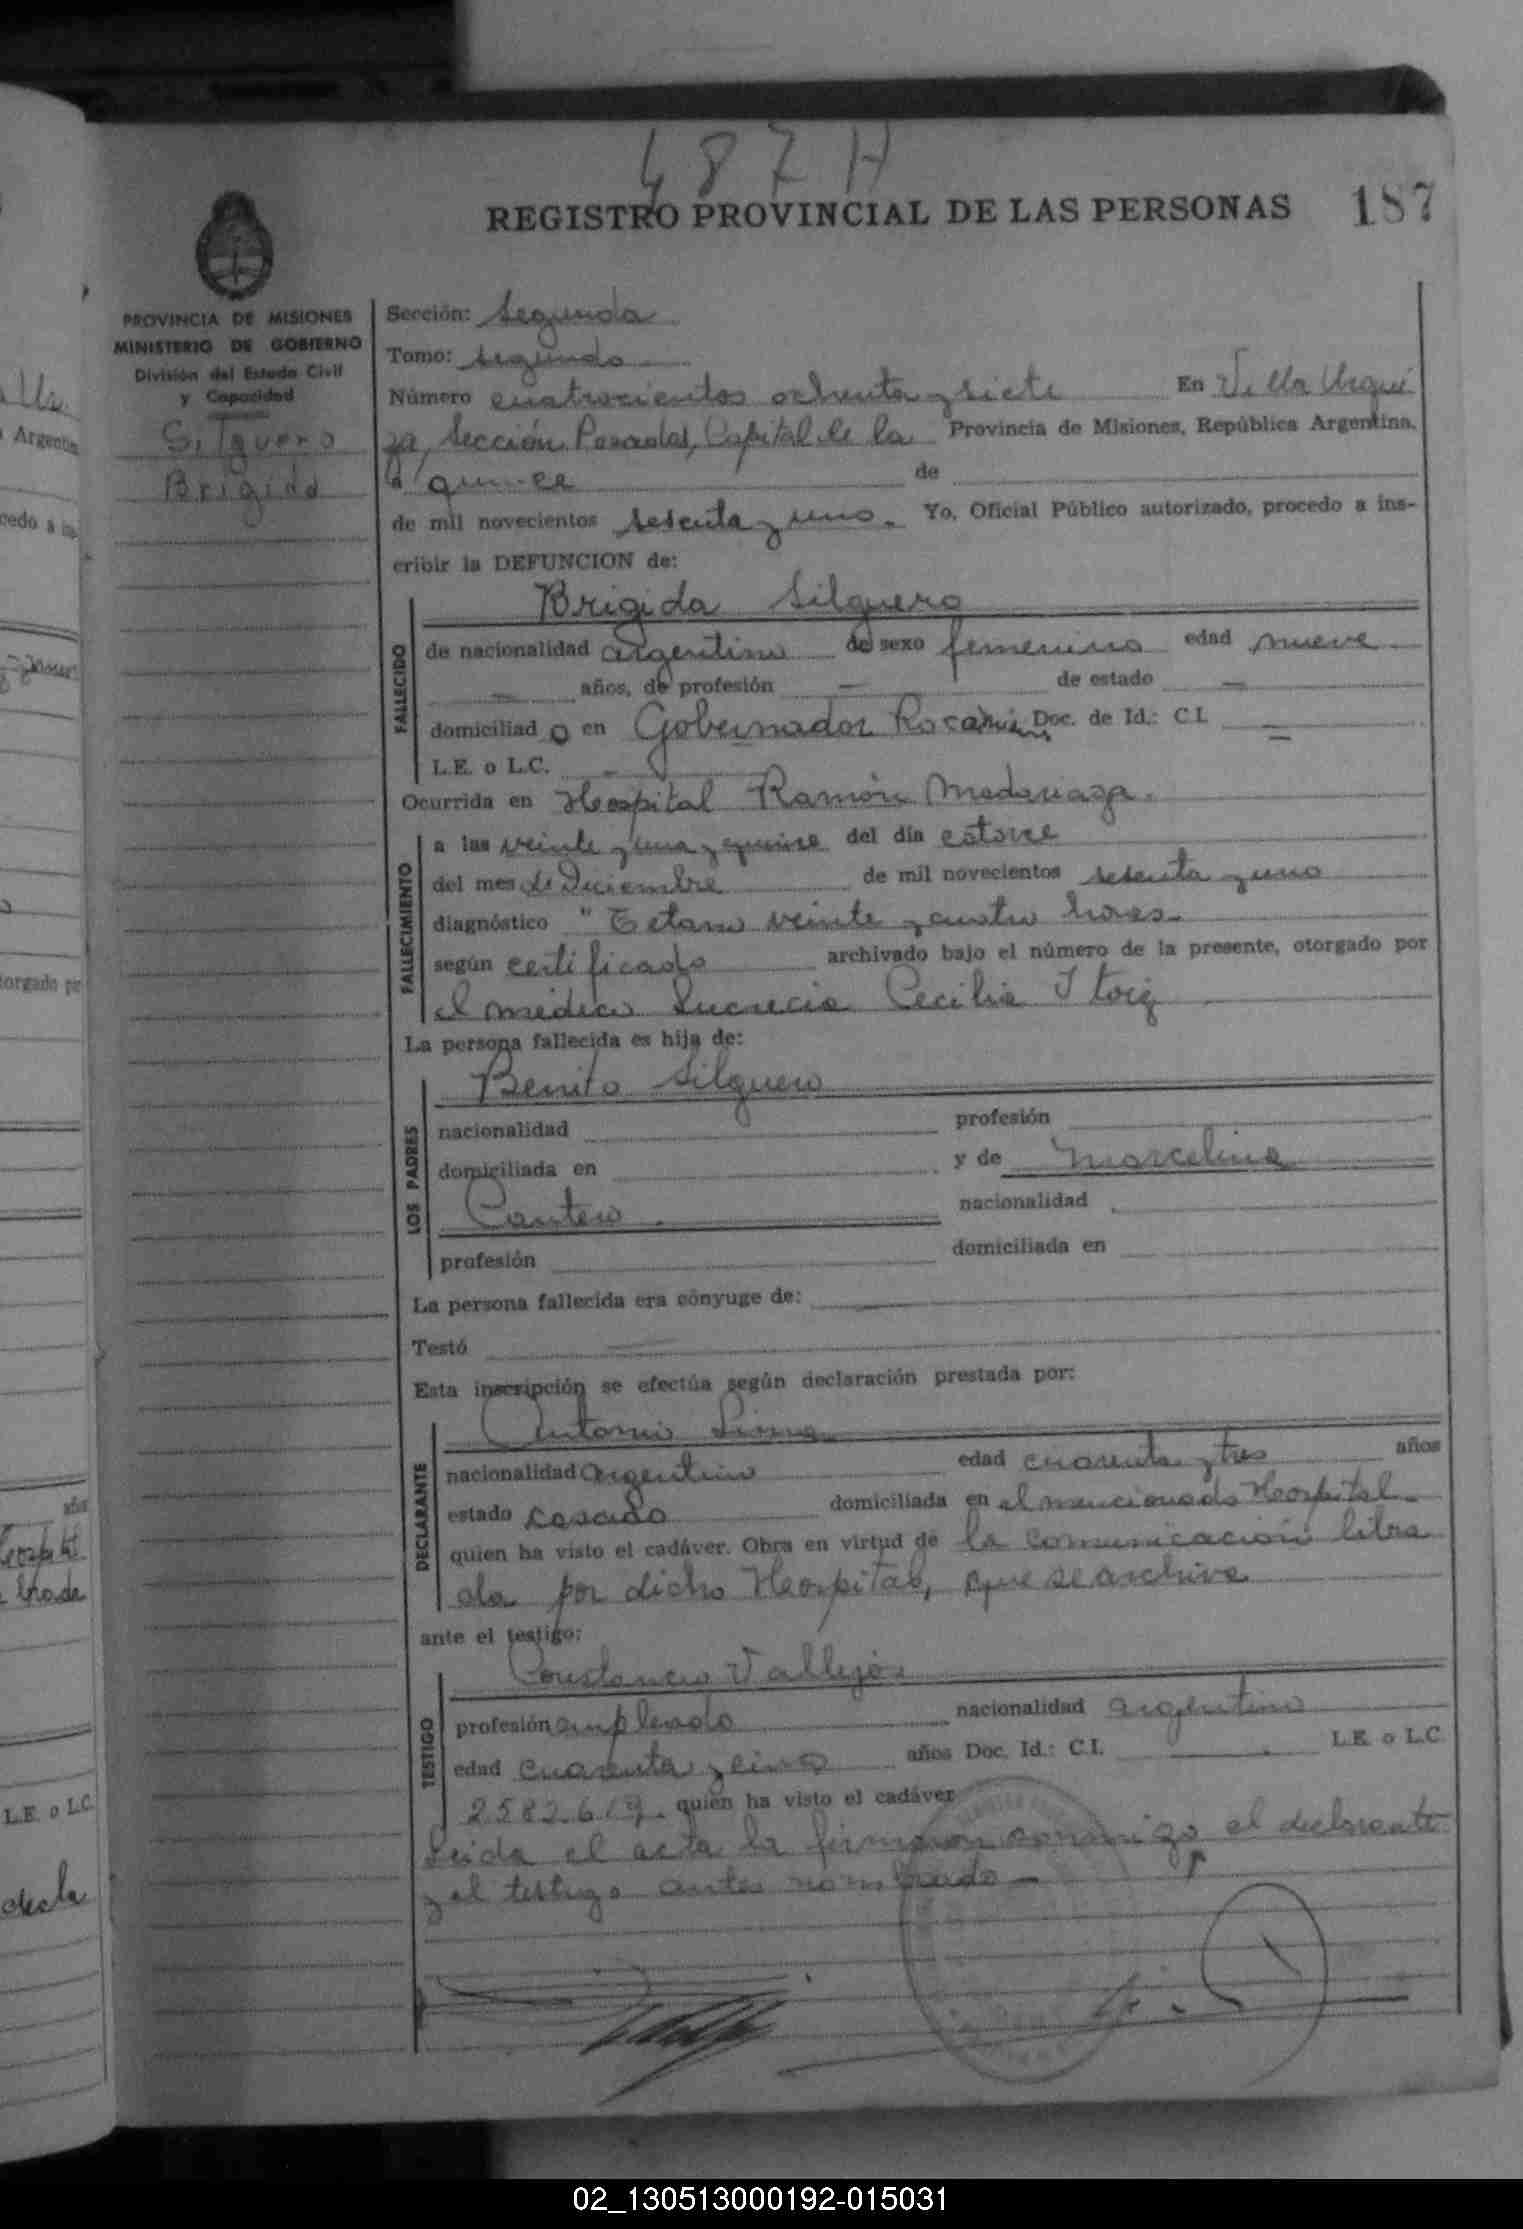 487 H
REGISTRO PROVINCIAL DE LAS PERSONAS 187
PROVINCIA DE MISIONES
MINISTERIO DE GOBIERNO
División del Estado Civil
y Capacidad
Silguero
Brigida
Sección: Segunda
Tomo: segundo
Número cuatrocientos ochenta y siete En Villa Urqui
za, Sección Posadas, Capital de la Provincia de Misiones, República Argentina,
a quince de
de mil novecientos setenta y uno. Yo, Oficial Público autorizado, procedo a ins-
cribir la DEFUNCION de:
Brigida Silguero
FALLECIDO
de nacionalidad argentina de sexo femenino edad nueve
— años, de profesión — de estado —
domiciliad o en Gobernador Doc. de Id.: C.I. —
L.E. o L.C. —
Ocurrida en Hospital Ramón Madariaga.
FALLECIMIENTO
a las veinte y una y quince del día catorce
del mes de Diciembre de mil novecientos setenta y uno
diagnóstico " Tetano veinte y cuatro horas.
según certificado archivado bajo el número de la presente, otorgado por
el médico Lucrecia Cecilia
La persona fallecida es hija de:
LOS PADRES
Benito Silguero
nacionalidad profesión
domiciliada en y de Marcelina
Cantero. nacionalidad
profesión domiciliada en
La persona fallecida era cónyuge de: —
Testó —
Esta inscripción se efectúa según declaración prestada por:
DECLARANTE
Antonio
nacionalidad argentino edad cuarenta y tres años
estado casado domiciliada en el mencionado Hospital.
quien ha visto el cadáver. Obra en virtud de la comunicación libra
da por dicho Hospital, que se archiva
ante el testigo:
TESTIGO
Constancio Vallejos
profesión empleado nacionalidad argentino
edad cuarenta y cinco años Doc. Id.: C.I. — L.E. o L.C.
2582619. quien ha visto el cadáver
Leida el acta la firmaron conmigo el declarante
y el testigo antes nombrado —
02_130513000192-015031